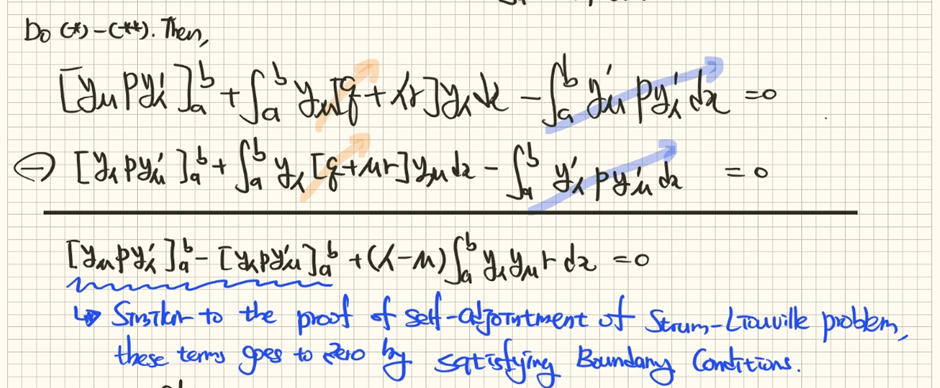 Do (*) - (**). Then,
[y_μ p y'_λ]_a^b + ∫_a^b y_μ [q + λr] y_λ dx - ∫_a^b y'_μ p y'_λ dx = 0
(-) [y_λ p y'_μ]_a^b + ∫_a^b y_λ [q + μr] y_μ dx - ∫_a^b y'_λ p y'_μ dx = 0
[y_μ p y'_λ]_a^b - [y_λ p y'_μ]_a^b + (λ-μ) ∫_a^b y_λ y_μ r dx = 0
↳ Similar to the proof of self-adjointment of Strum-Liouville problem,
these terms goes to zero by satisfying Boundary Conditions.